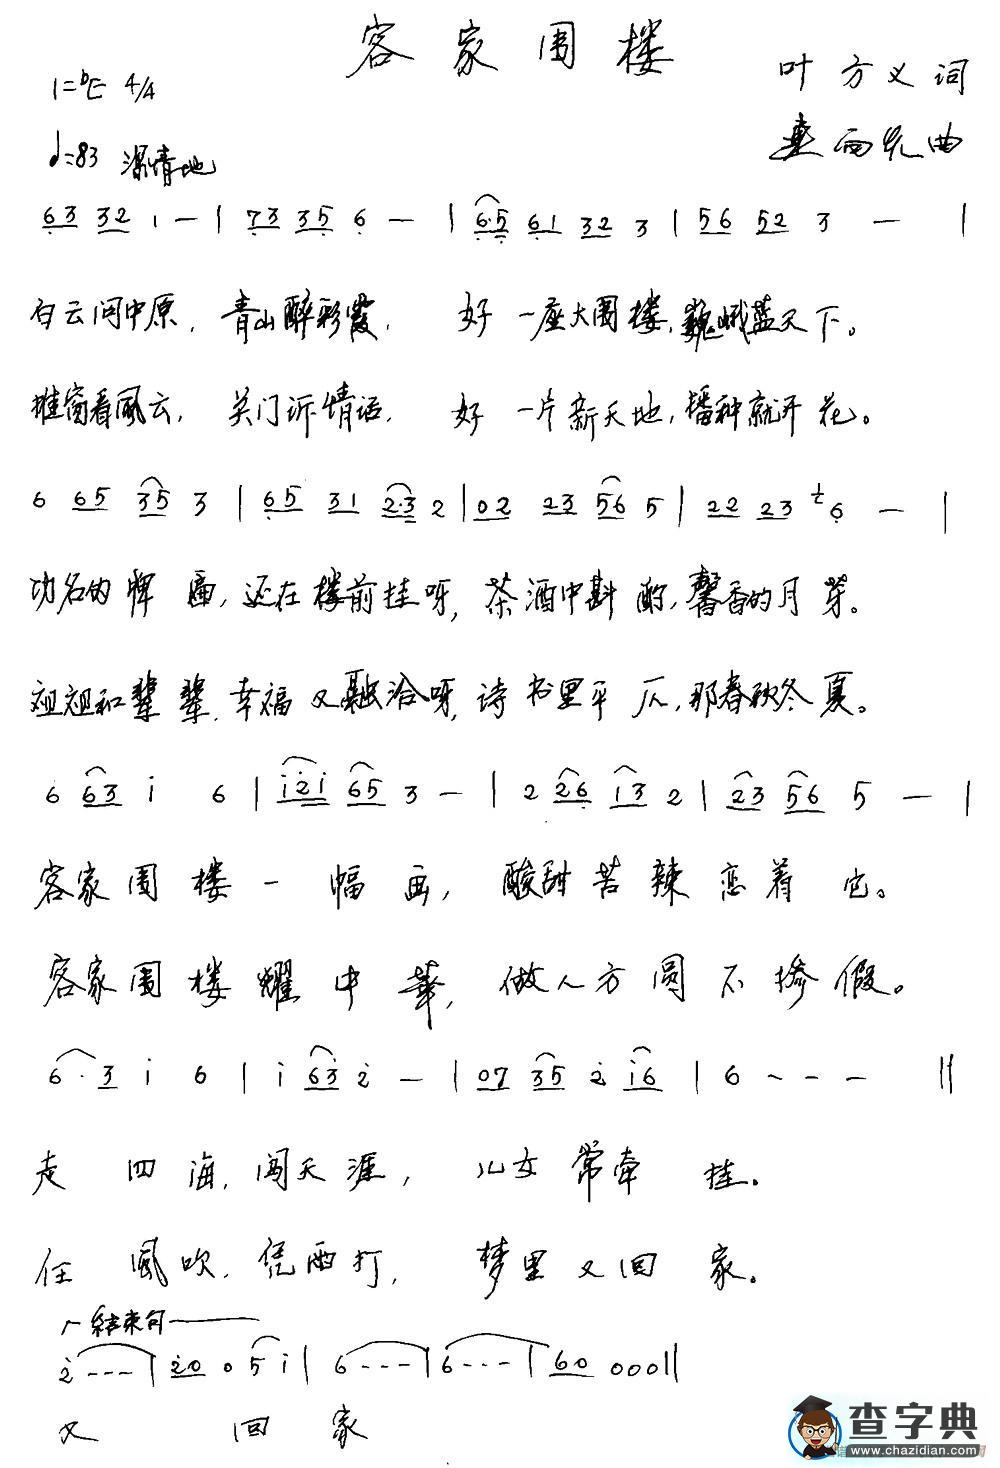 客家围楼
1=ᵇE 4/4
叶方义词
♩=83 深情地
西先曲
63 32 1 — | 73 35 6 — | 6·5 61 32 3 | 56 52 3 — |
白云问中原，青山醉彩霞， 好一座大围楼，巍峨蓝天下。
推窗看风云，关门诉情话， 好一片新天地，播种就开花。
6 65 35 3 | 65 31 2·3 2 | 02 23 56 5 | 22 23 6 — |
功名的牌匾，还在楼前挂呀，茶酒中斟酌，馨香的月芽。
祖祖和辈辈，幸福又融洽呀，诗书里平仄，那春秋冬夏。
6 63 i 6 | i2i 65 3 — | 2 26 13 2 | 23 56 5 — |
客家围楼一幅画，酸甜苦辣恋着它。
客家围楼耀中华，做人方圆不掺假。
6·3 i 6 | i 63 2 — | 07 35 2 i6 | 6 - - - ‖
走四海，闯天涯，儿女常牵挂。
任风吹，凭雨打，梦里又回家。
结束句
2 - - - | 20 0 5 i | 6 - - - | 6 - - - | 60 000 ‖
又回家
查字典
www.chazidian.com